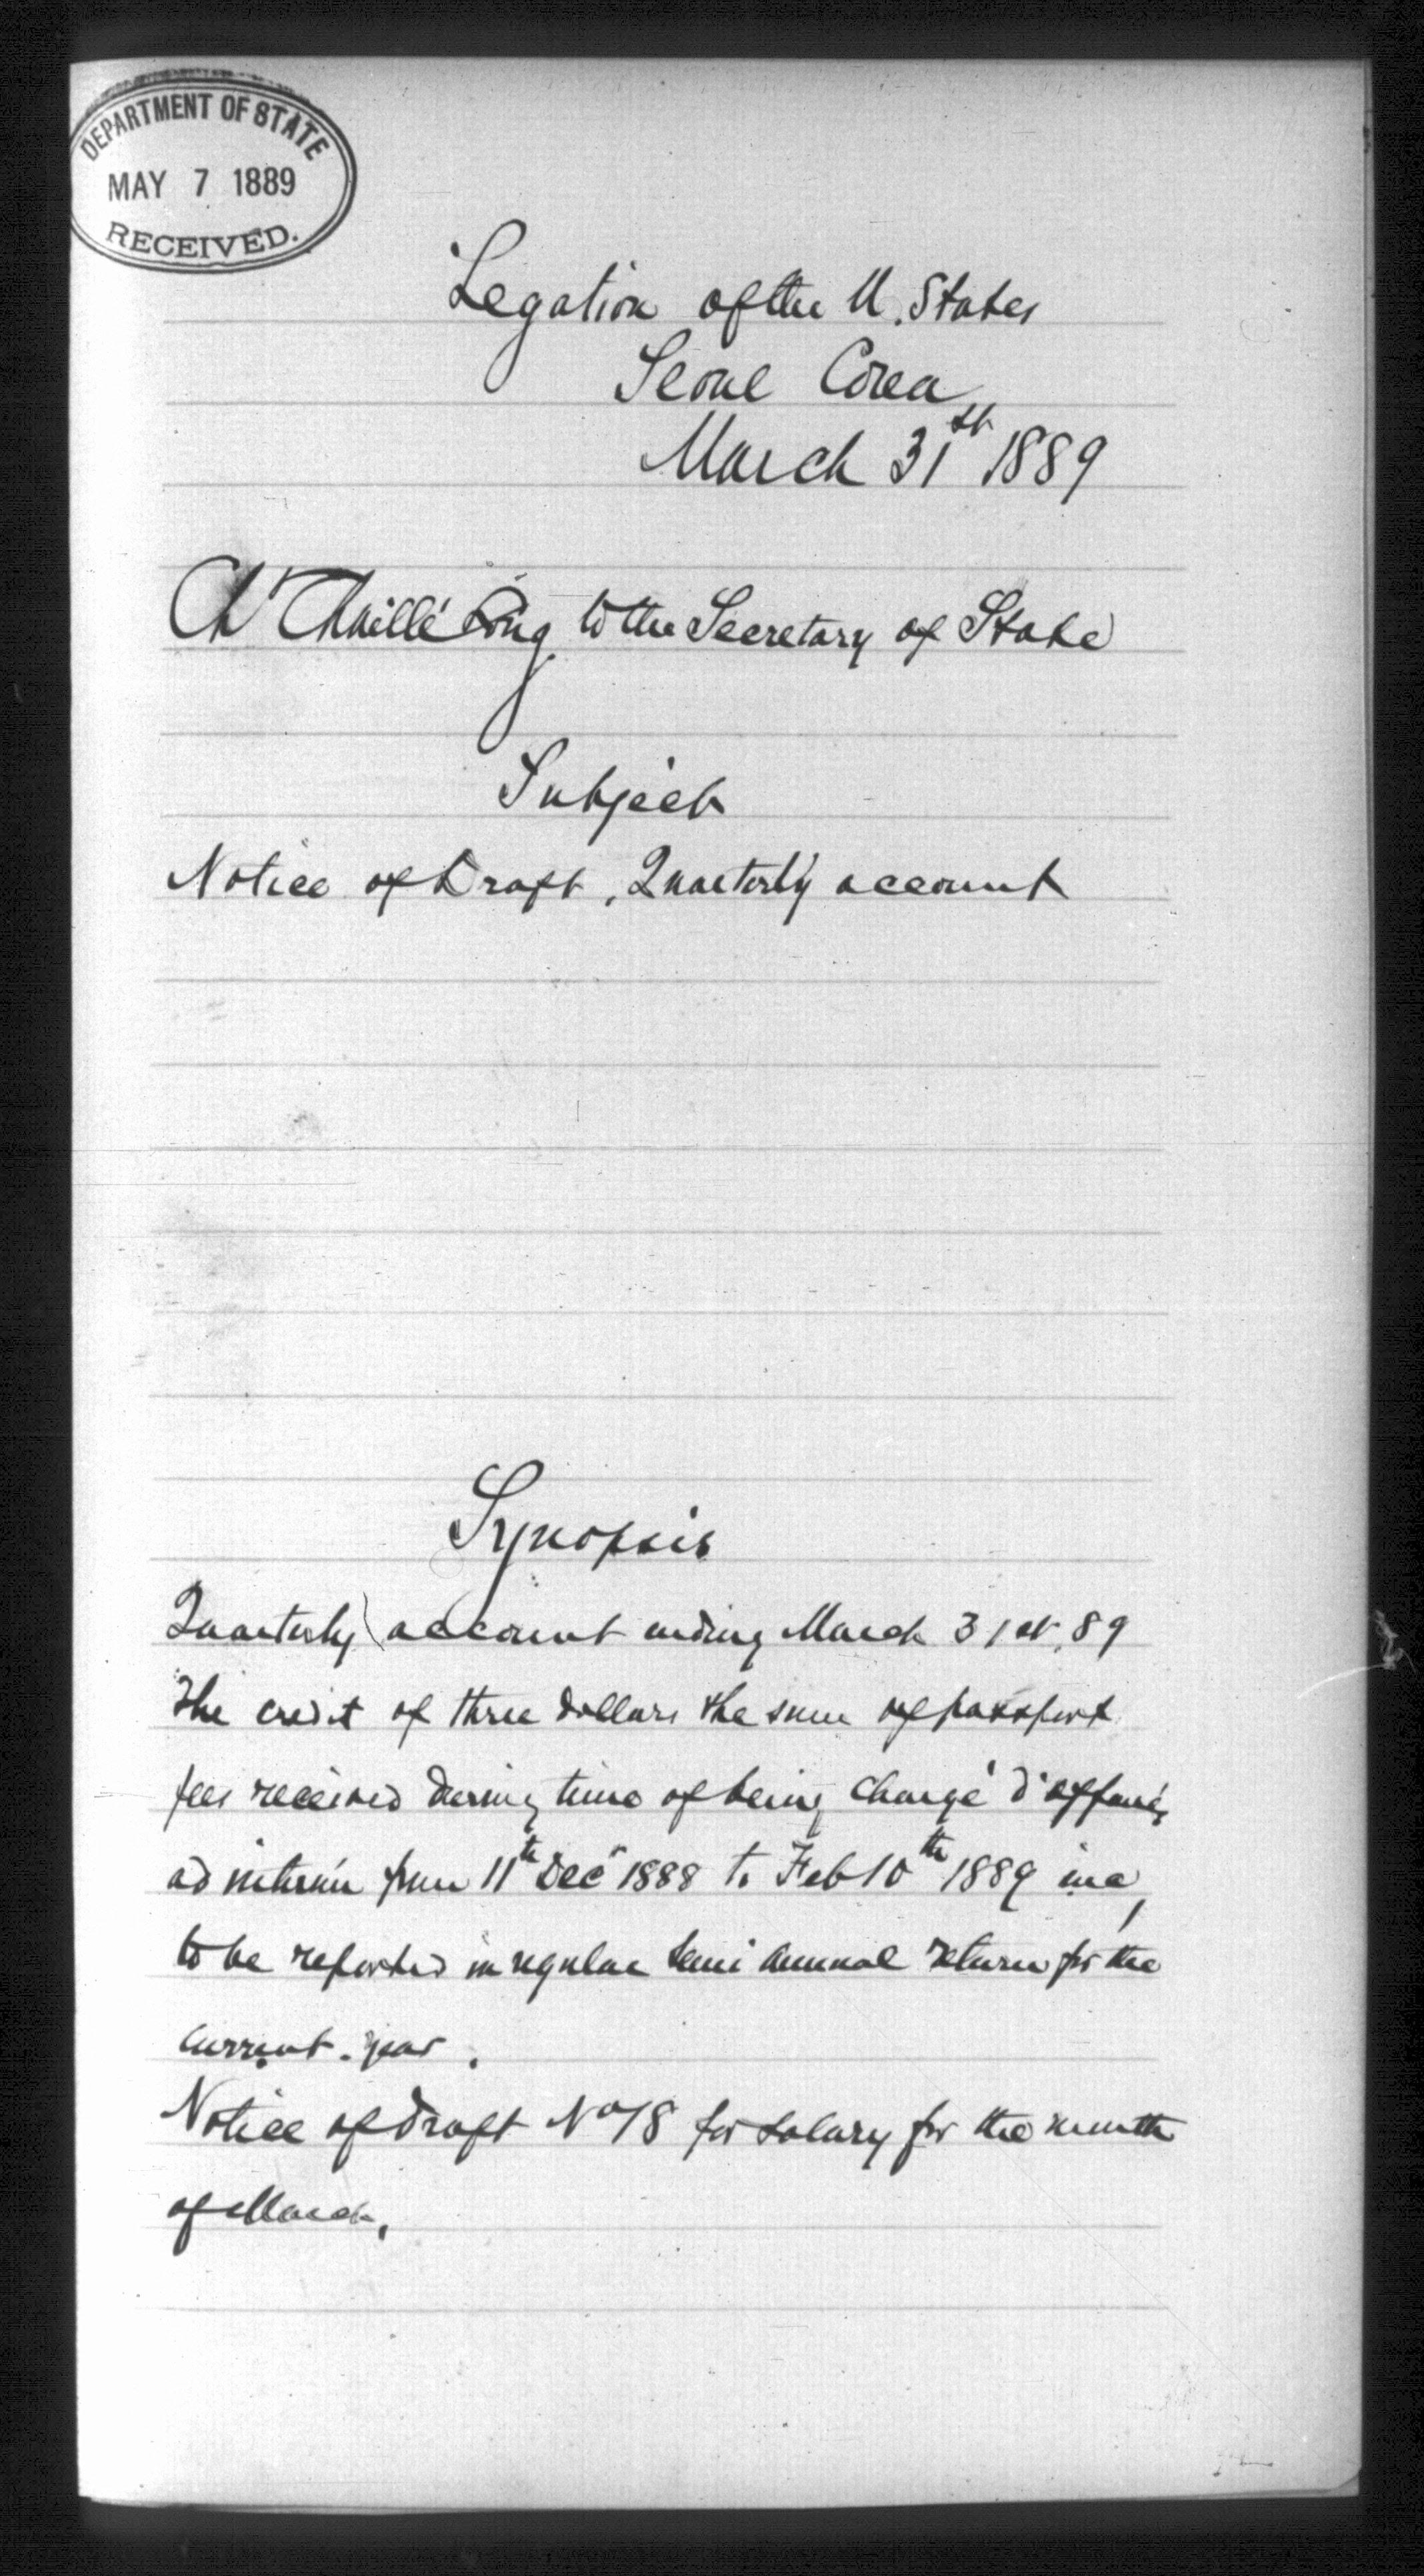 DEPARTMENT OF STATE
MAY 7 1889
RECEIVED.
Legation of the U. States
Seoul Corea
March 31st 1889
Ch Chaillé Long to the Secretary of State
Subject
Notice of Draft, Quarterly account
Synopsis
Quarterly account ending March 31st, 89
The credit of three dollars the sum of passport
fees received during time of being Chargé d'affaires
ad interim from 11th Dec 1888 to Feb 10th 1889 inc,
to be reported in regular Semi Annual return for the
current year.
Notice of draft No 18 for salary for the month
of March.